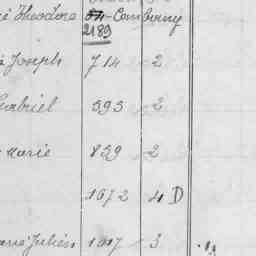 Theodore Comborny
2189
Joseph 714 2
Gabriel 595 2
Marie 829 2
1672 4 D
Julien 1017 3